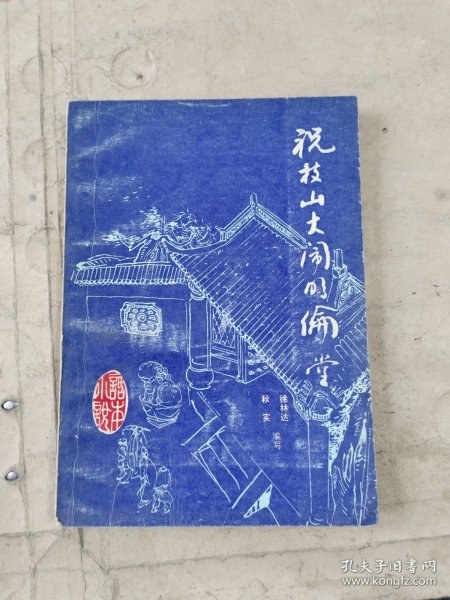 祝枝山大闹明倫堂
徐林达
秋实
编写
話本
小說
孔夫子旧书网
www.kongfz.com